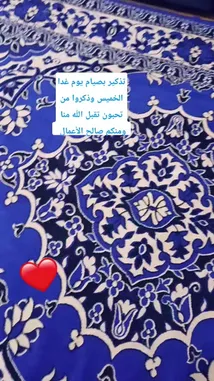 تذكير بصيام يوم غدا
الخميس وذكروا من
تحبون تقبل الله منا
ومنكم صالح الأعمال